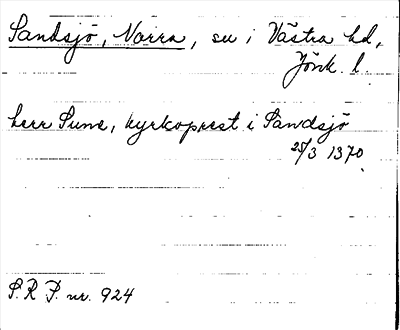 Sandsjö, Norra, sn i Västra hd,
Jönk. l.
herr Sune, kyrkoprest i Sandsjö
25/3 1370
S.R.P. nr. 924